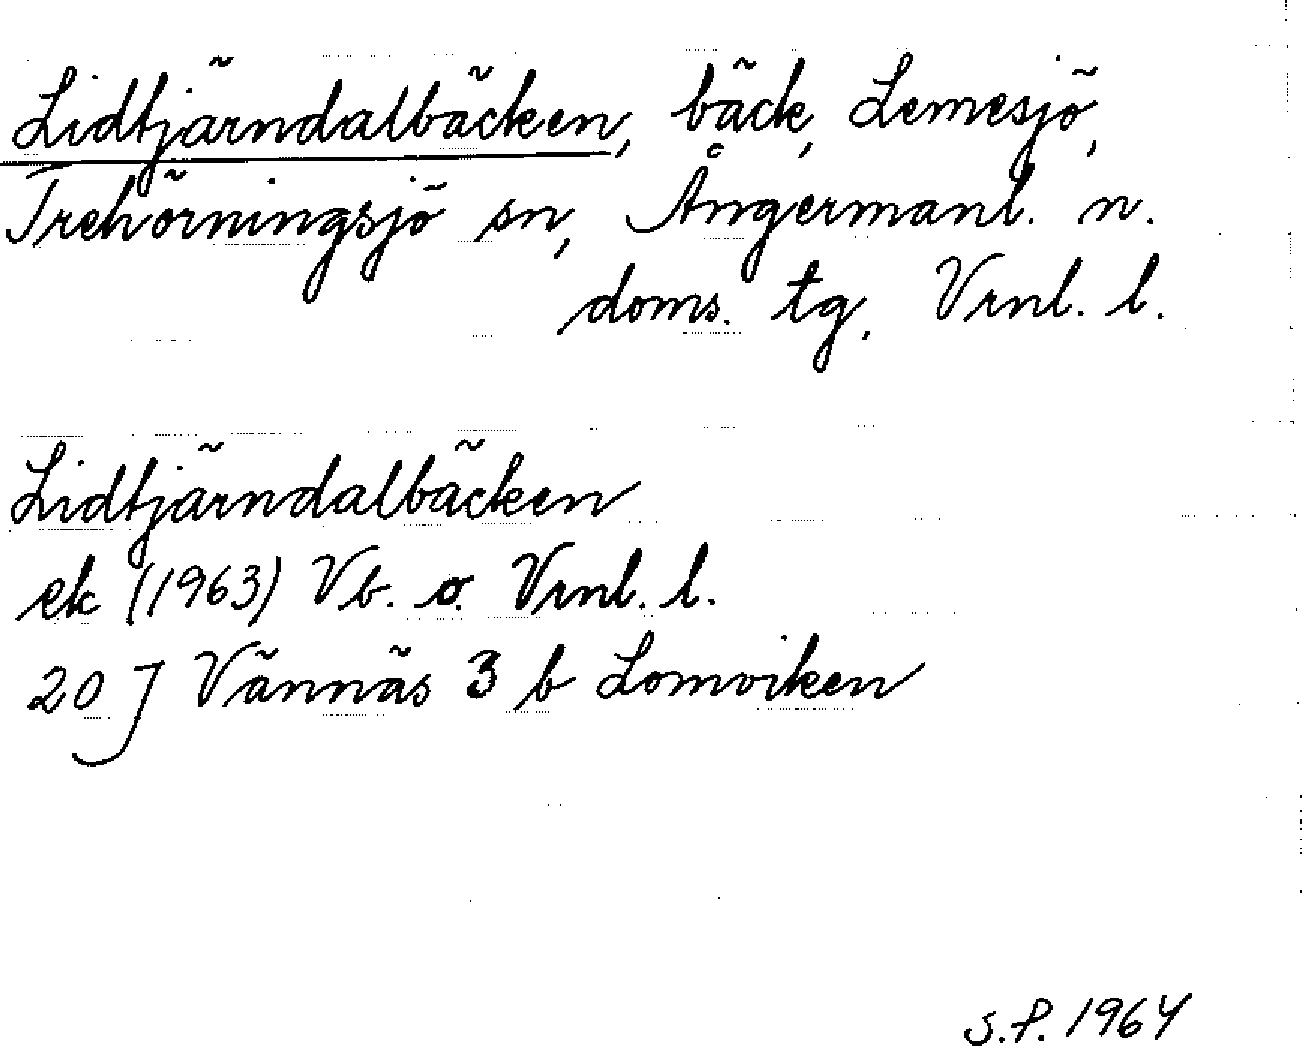 Lidtjärndalbäcken, bäck, Lemesjö,
Trehörningsjö sn, Ångermanl. n.
doms. tg. Vrnl. l.
Lidtjärndalbäcken
ek (1963) Vb. o. Vrnl. l.
20 J Vännäs 3 b Lomviken
S.P. 1964